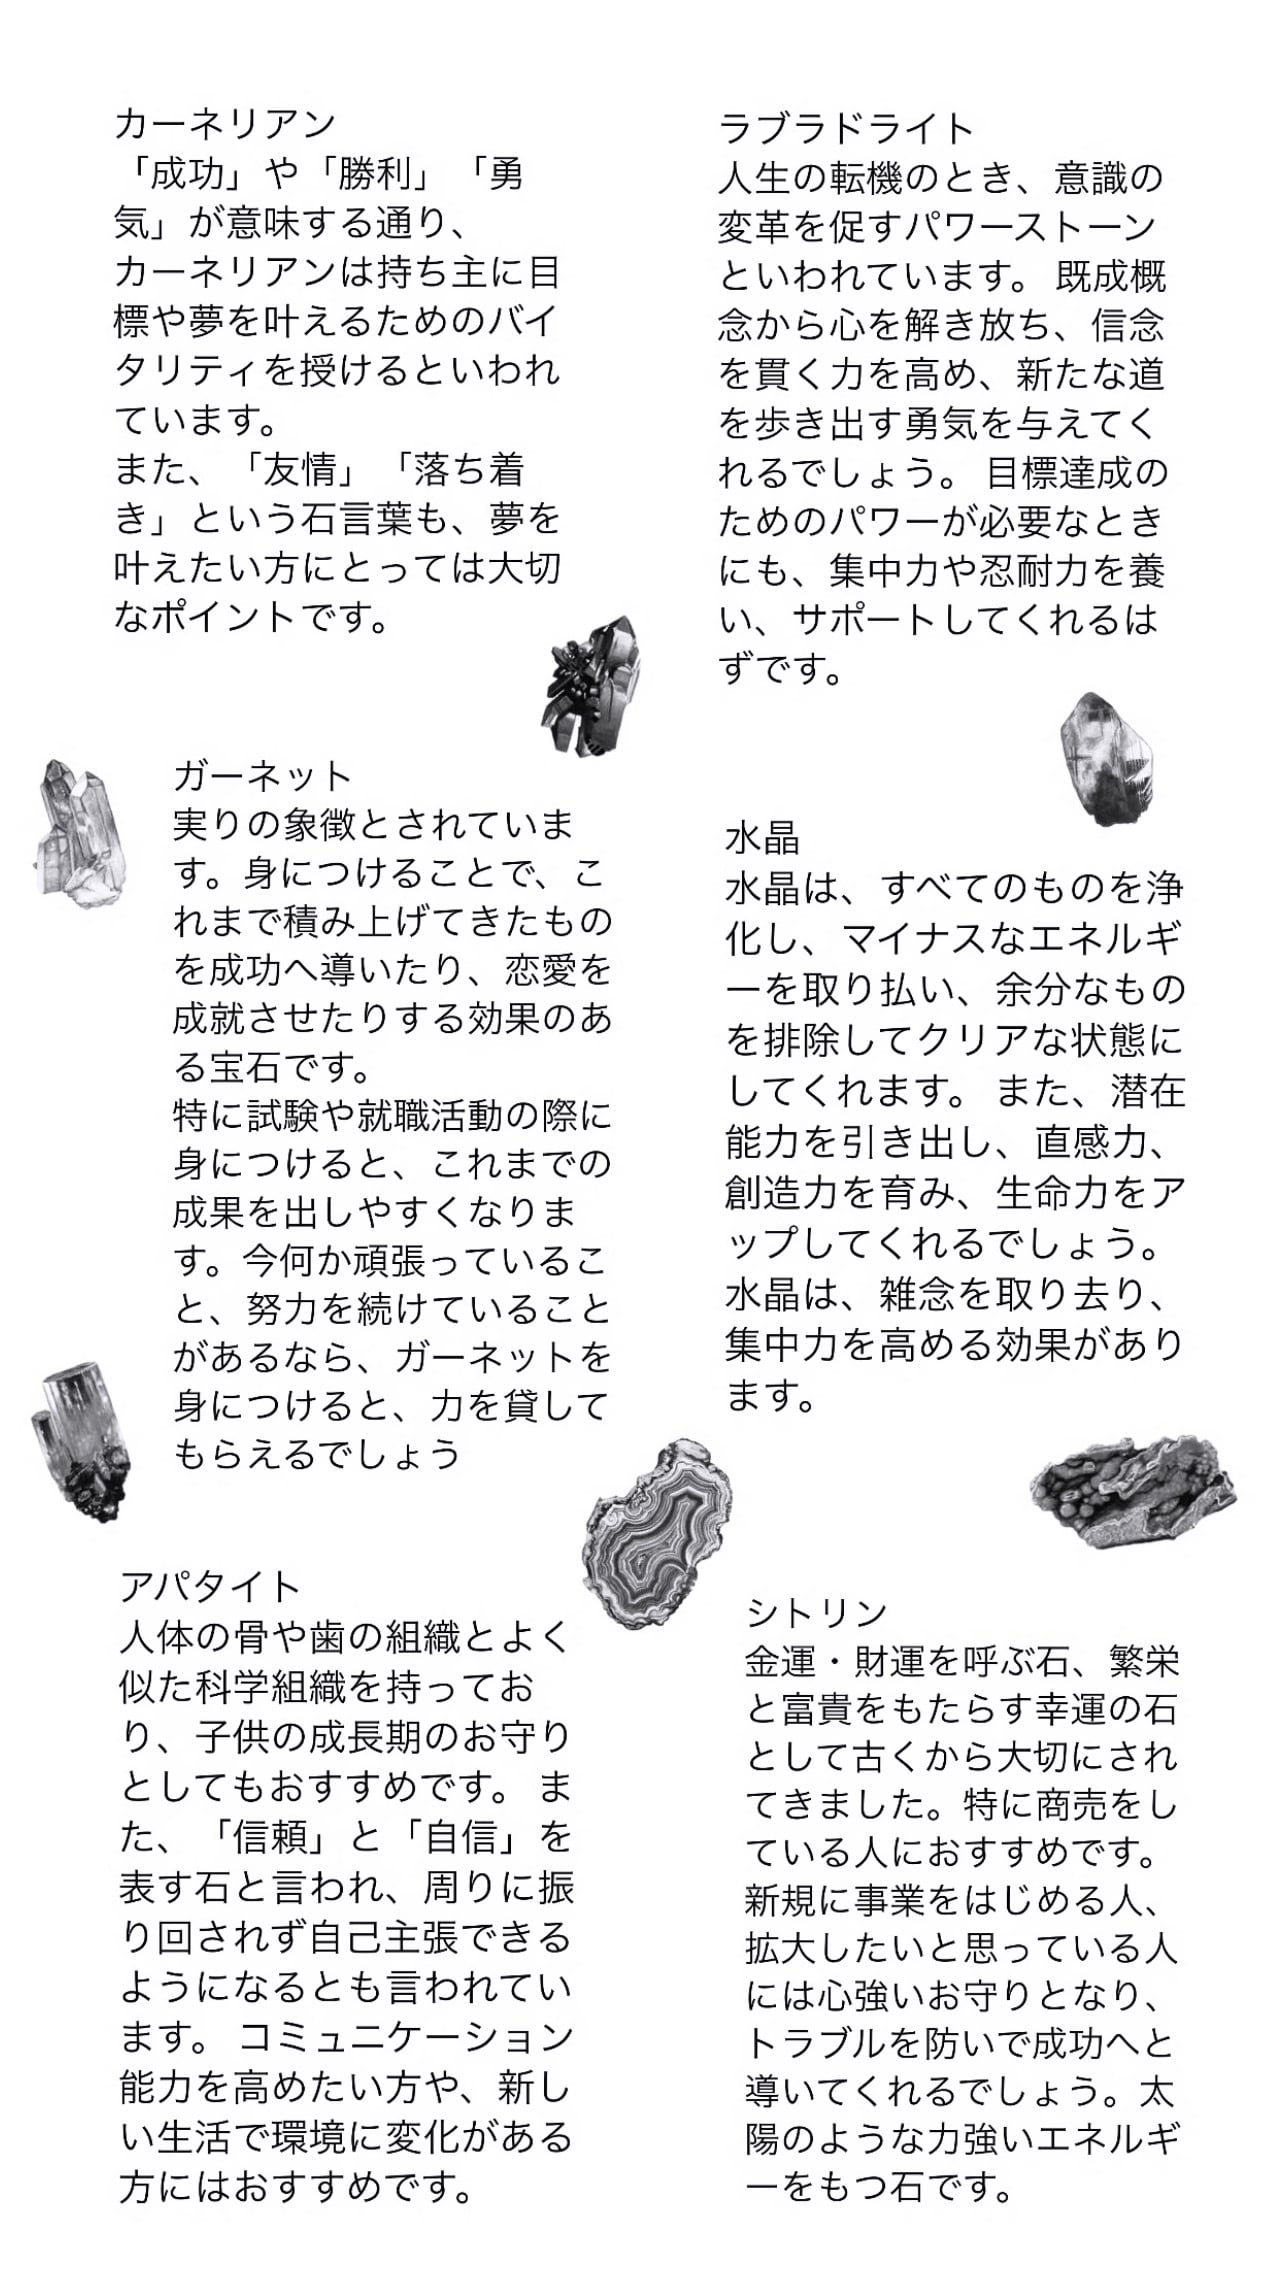 カーネリアン
「成功」や「勝利」「勇
気」が意味する通り、
カーネリアンは持ち主に目
標や夢を叶えるためのバイ
タリティを授けるといわれ
ています。
また、「友情」「落ち着
き」という石言葉も、夢を
叶えたい方にとっては大切
なポイントです。
ラブラドライト
人生の転機のとき、意識の
変革を促すパワーストーン
といわれています。 既成概
念から心を解き放ち、信念
を貫く力を高め、新たな道
を歩き出す勇気を与えてく
れるでしょう。 目標達成の
ためのパワーが必要なとき
にも、集中力や忍耐力を養
い、サポートしてくれるは
ずです。
ガーネット
実りの象徴とされていま
す。身につけることで、こ
れまで積み上げてきたもの
を成功へ導いたり、恋愛を
成就させたりする効果のあ
る宝石です。
特に試験や就職活動の際に
身につけると、これまでの
成果を出しやすくなりま
す。今何か頑張っているこ
と、努力を続けていること
があるなら、ガーネットを
身につけると、力を貸して
もらえるでしょう
水晶
水晶は、すべてのものを浄
化し、マイナスなエネルギ
ーを取り払い、余分なもの
を排除してクリアな状態に
してくれます。 また、潜在
能力を引き出し、直感力、
創造力を育み、生命力をア
ップしてくれるでしょう。
水晶は、雑念を取り去り、
集中力を高める効果があり
ます。
アパタイト
人体の骨や歯の組織とよく
似た科学組織を持ってお
り、子供の成長期のお守り
としてもおすすめです。 ま
た、「信頼」と「自信」を
表す石と言われ、周りに振
り回されず自己主張できる
ようになるとも言われてい
ます。 コミュニケーション
能力を高めたい方や、新し
い生活で環境に変化がある
方にはおすすめです。
シトリン
金運・財運を呼ぶ石、繁栄
と富貴をもたらす幸運の石
として古くから大切にされ
てきました。特に商売をし
ている人におすすめです。
新規に事業をはじめる人、
拡大したいと思っている人
には心強いお守りとなり、
トラブルを防いで成功へと
導いてくれるでしょう。太
陽のような力強いエネルギ
ーをもつ石です。